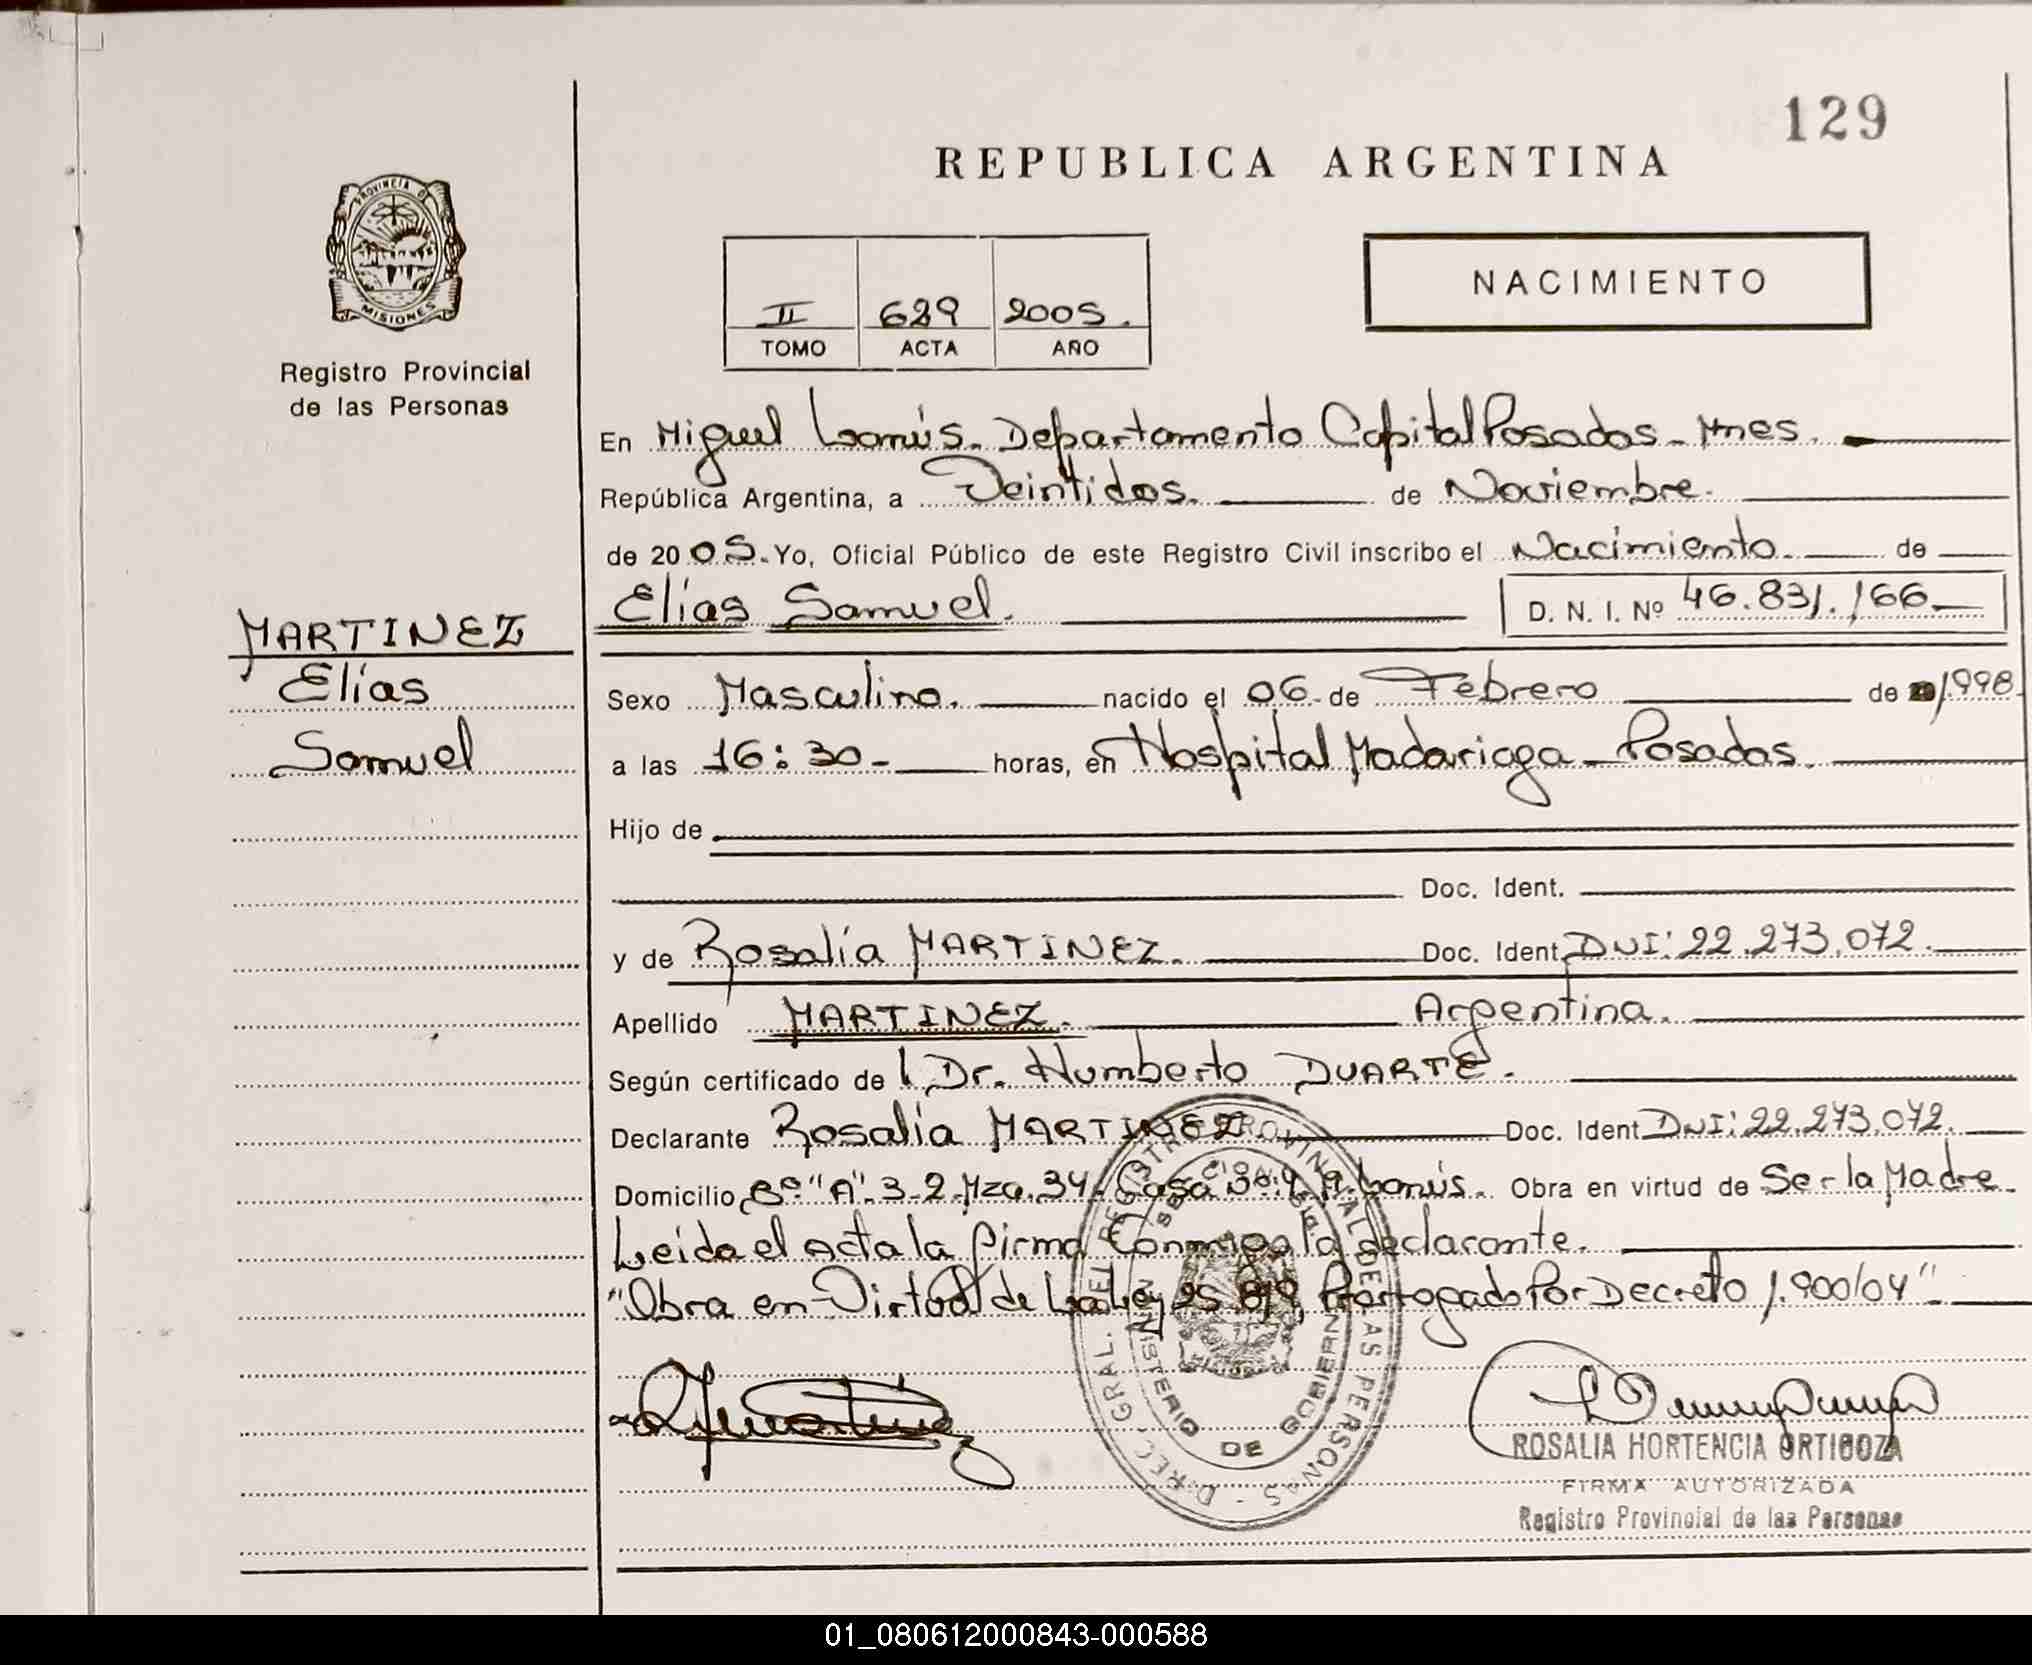 129
REPUBLICA ARGENTINA
PROVINCIA DE
MISIONES
Registro Provincial
de las Personas
II 629 2005.
TOMO ACTA AÑO
NACIMIENTO
En Miguel Lanús. Departamento Capital Posadas - Mnes.
República Argentina, a Veintidos. de Noviembre.
de 20 05. Yo, Oficial Público de este Registro Civil inscribo el Nacimiento. de
Elías Samuel. D. N. I. Nº 46.831.166
MARTINEZ
Elías
Samuel
Sexo Masculino. nacido el 06 de Febrero de 1998
a las 16:30 horas, en Hospital Madariaga - Posadas.
Hijo de
Doc. Ident.
y de Rosalía MARTINEZ. Doc. Ident. DNI: 22.273.072.
Apellido MARTINEZ. Argentina.
Según certificado de l Dr. Humberto DUARTE.
Declarante Rosalía MARTINEZ Doc. Ident DNI: 22.273.072.
Domicilio Bº "A" 3-2 Mza. 34 Casa Lanús. Obra en virtud de Ser la Madre
Leida el acta la firma Conmigo la declarante.
"Obra en Virtud de La Ley 25 819 Prorrogado Por Decreto 1.900/04"
DIREC. GRAL. DEL REGISTRO PROVINCIAL DE LAS PERSONAS
MINISTERIO DE GOBIERNO
ROSALIA HORTENCIA ORTIGOZA
FIRMA AUTORIZADA
Registro Provincial de las Personas
01_080612000843-000588